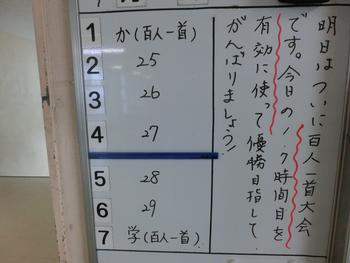 明日はついに百人一首大会
です。今日の1、7時間目を
有効に使って優勝目指して
がんばりましょう!
1 か(百人一首)
2 25
3 26
4 27
5 28
6 29
7 学(百人一首)